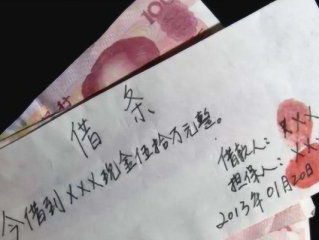 借条
今借到XXX现金伍拾万元整。
借款人：XXX
担保人：XX
2013年01月20日
100